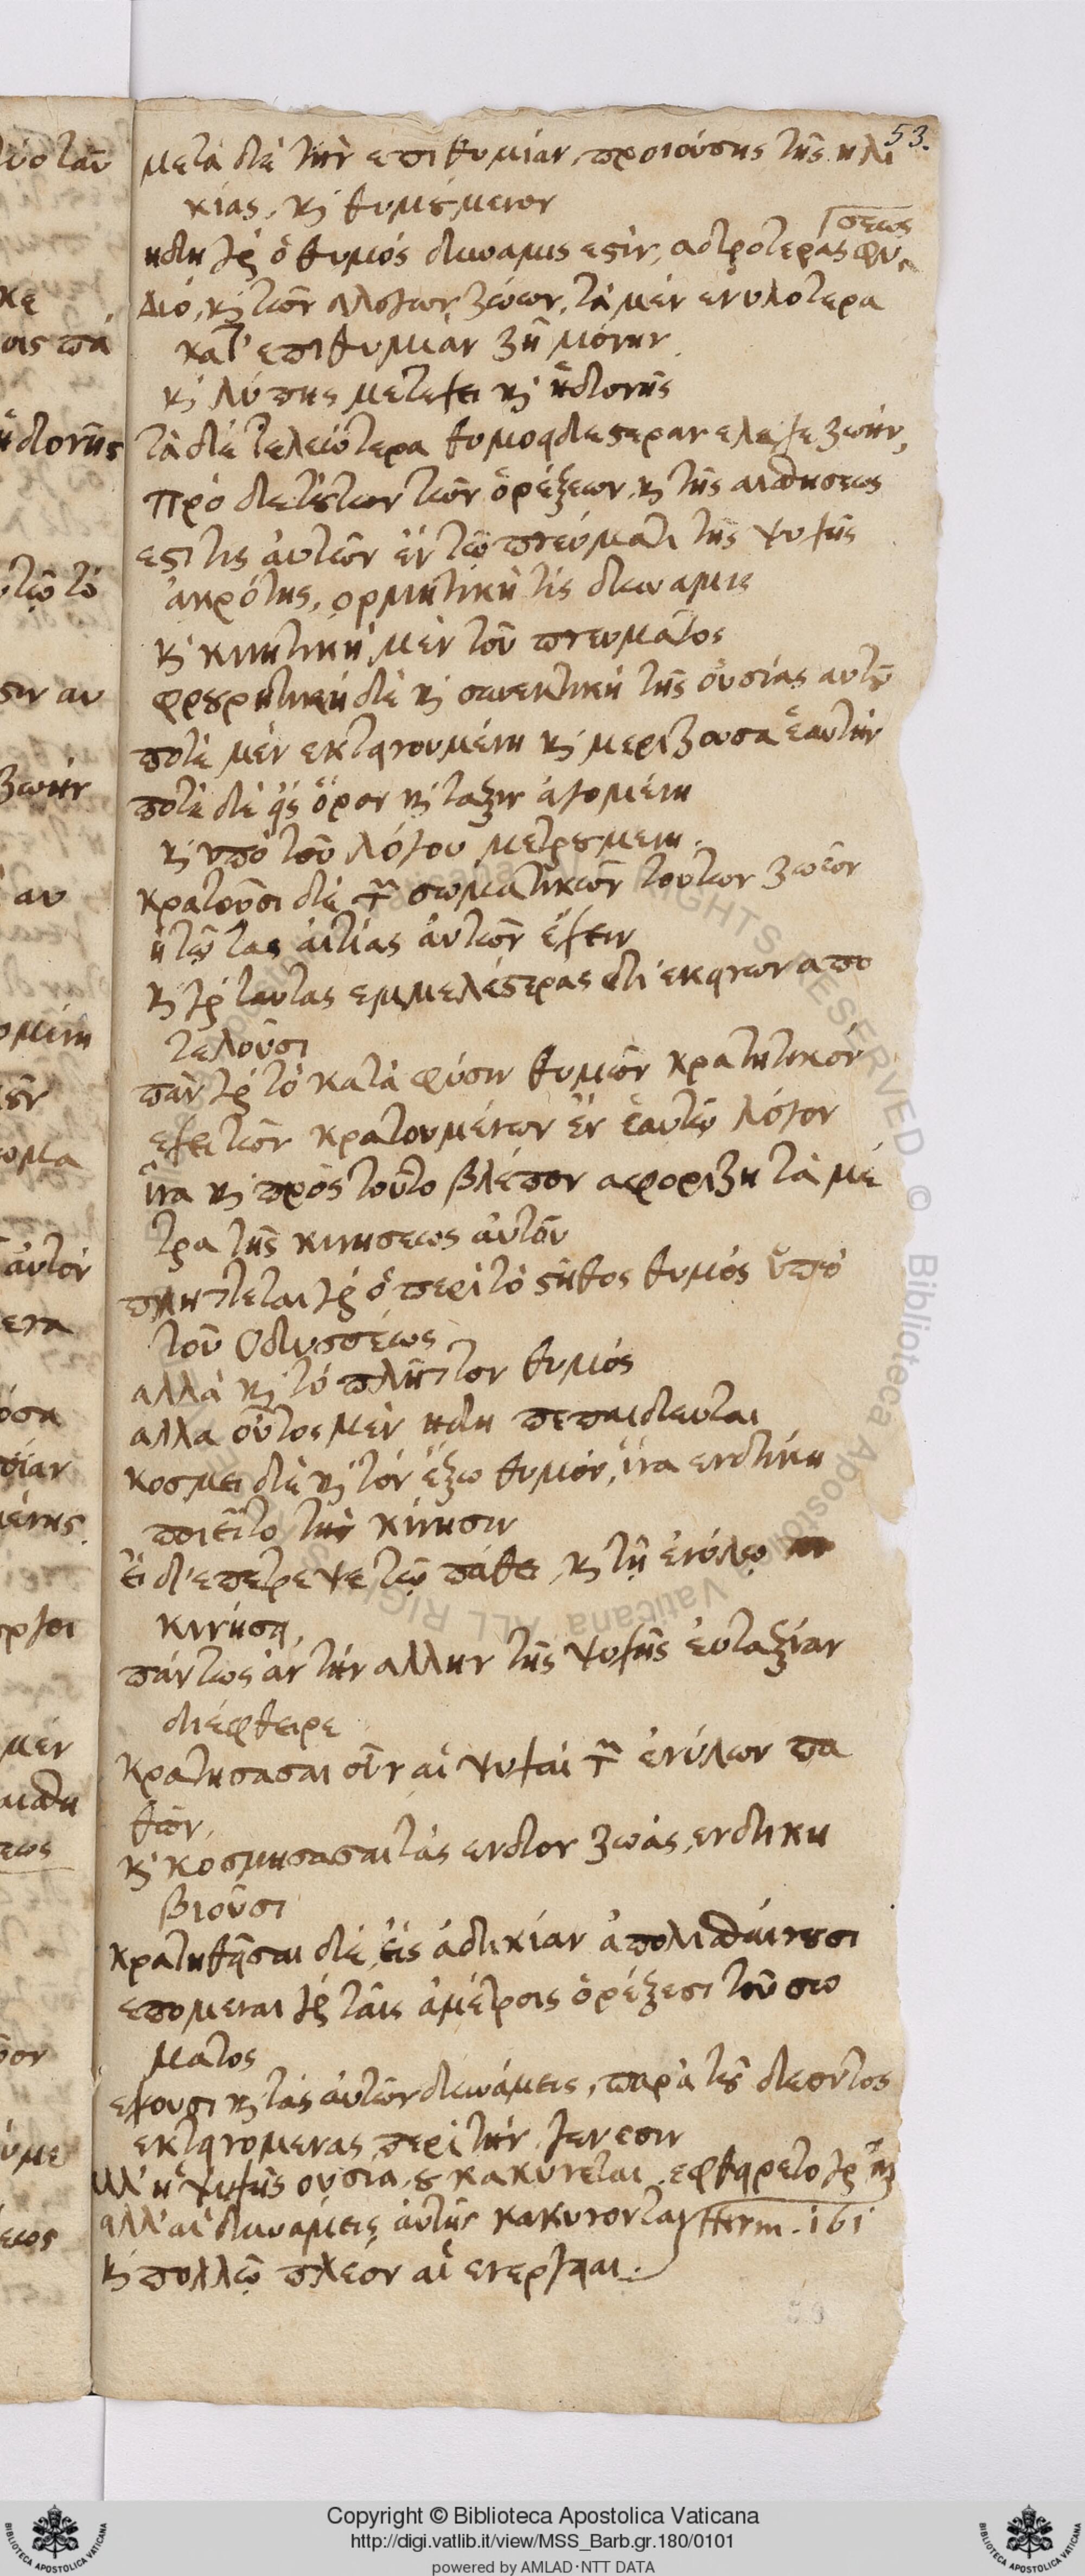 53.
μετὰ δὲ τὴν επιθυμίαν, προιούσης τῆς ηλι
κίας, κ̀ θυμȣ́μενον
ηδη γὰρ ὁ θυμός δυναμις εστὶν, αδροτερας φύ
σεως
Διό, κ̀ τῶν αλογων ζώων, τὰ μὲν ενυλοτερα
κατ' επιθυμίαν ζῆ μόνην
κ̀ λύπης μετέχει κ̀ ἡδονῆς
τὰ δὲ τελειότερα θυμοειδεστεραν ελαχε ζωὴν,
Πρὸ δὲ τȣτων τῶν ὀρέξεων, κ̀ τῆς αισθησεως
εστι τις ἀυτῶν ἐν τῶ πνεύματι τῆς ψυχῆς
ἀκρότης, ορμητικὴ τὶς δυναμις
κ̀ κινητικὴ μὲν τοῦ πνευματος
φρȣρητικὴ δὲ κ̀ συνεκτικὴ τῆς ὀυσίας αυτȣ̃
ποτὲ μὲν εκτεινουμένη κ̀ μεριζουσα ἑαυτὴν
ποτὲ δὲ εἰς ὅρον κ̀ ταξιν ἀγομένη
κ̀ υπὸ τοῦ λόγου μετρȣμενη.
κρατοῦσι δὲ τῶν σωματικῶν τουτων ζωῶν
ἡ τῶ τας ἀιτίας ἀυτῶν ἔχειν
κ̀ γὰρ ταυτας εμμελέστερας δι' εκεινων απο
τελοῦσι
πὰν γὰρ τὸ κατὰ φύσιν θυμῶν κρατητικόν
εχει τῶν κρατουμένων ἐν ἑαυτῶ λόγον
ἵνα κ̀ πρὸς τοῦτο βλέπον αφοριζη τὰ μέ
τρα τῆς κινησεως ἀυτοῦ
πληττεται γὰρ ὁ περὶ τὸ στῆθος θυμός ὑπὸ
τοῦ Οδυσσέως
αλλὰ κ̀ τὸ πλῆττον θυμός
αλλα οὗτος μὲν ηδη πεπαιδευται
κοσμει δὲ κ̀ τὸν ἔξω θυμόν, ἵνα ενδίκη
ποιεῖτο τὴν κίνησιν
ἐι δ' επετρεψε τῶ πάθει, κ̀ τῆ ἐνύλω
κινήσει,
πάντως ἀν τὴν αλλην τῆς ψυχῆς ἐυταξίαν
διέφθειρε
κρατησασαι οὖν αἱ ψυχαὶ τῶν ἐνύλων πα
θῶν,
κ̀ κοσμησασαι τὰς ενδον ζωάς, ενδικη
βιοῦσι
κρατηθεῖσαι δὲ, ἐις ἀδικίαν ἀπολισθάινȣσι
επομεναι γὰρ τᾶις ἀμέτροις ὀρέξεσι τοῦ σω
ματος
εχουσι κ̀ τὰς ἀυτῶν δυνάμεις, παρὰ τȣ̃ δεοντος
εκτεινομενας περὶ τὴν γενεσιν
ἀλλ' ἡ ψυχῆς ουσία, ȣ κακυνεται, εφθειρετο γὰρ ἂν
αλλ' αἱ δυναμεις ἀυτῆς κακυνονται Herm. ibi
κ̀ πολλῶ πλέον αἱ ενεργειαι.
Copyright © Biblioteca Apostolica Vaticana
http://digi.vatlib.it/view/MSS_Barb.gr.180/0101
powered by AMLAD·NTT DATA